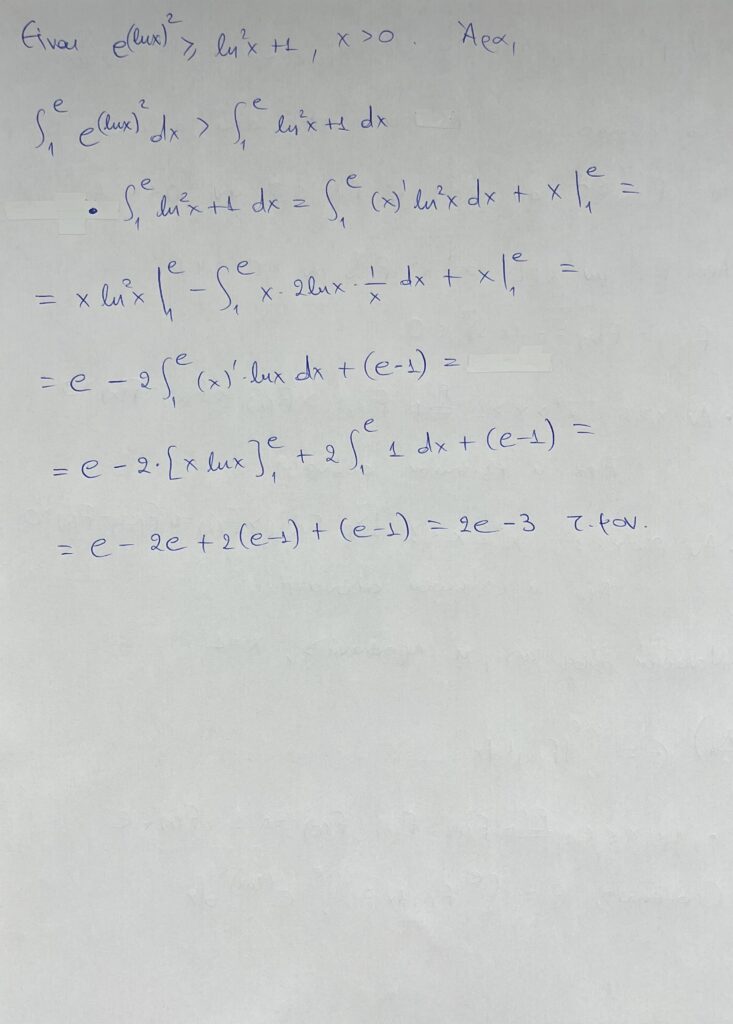 Είναι e^{(lnx)^2} ≥ ln²x +1, x >0. Άρα,
∫₁^e e^{(lnx)^2} dx > ∫₁^e ln²x +1 dx
• ∫₁^e ln²x +1 dx = ∫₁^e (x)' ln²x dx + x |₁^e =
= x ln²x |₁^e - ∫₁^e x · 2lnx · 1/x dx + x |₁^e =
= e - 2 ∫₁^e (x)' · lnx dx + (e-1) =
= e - 2 · [x lnx]₁^e + 2 ∫₁^e 1 dx + (e-1) =
= e - 2e + 2(e-1) + (e-1) = 2e -3 τ.μον.